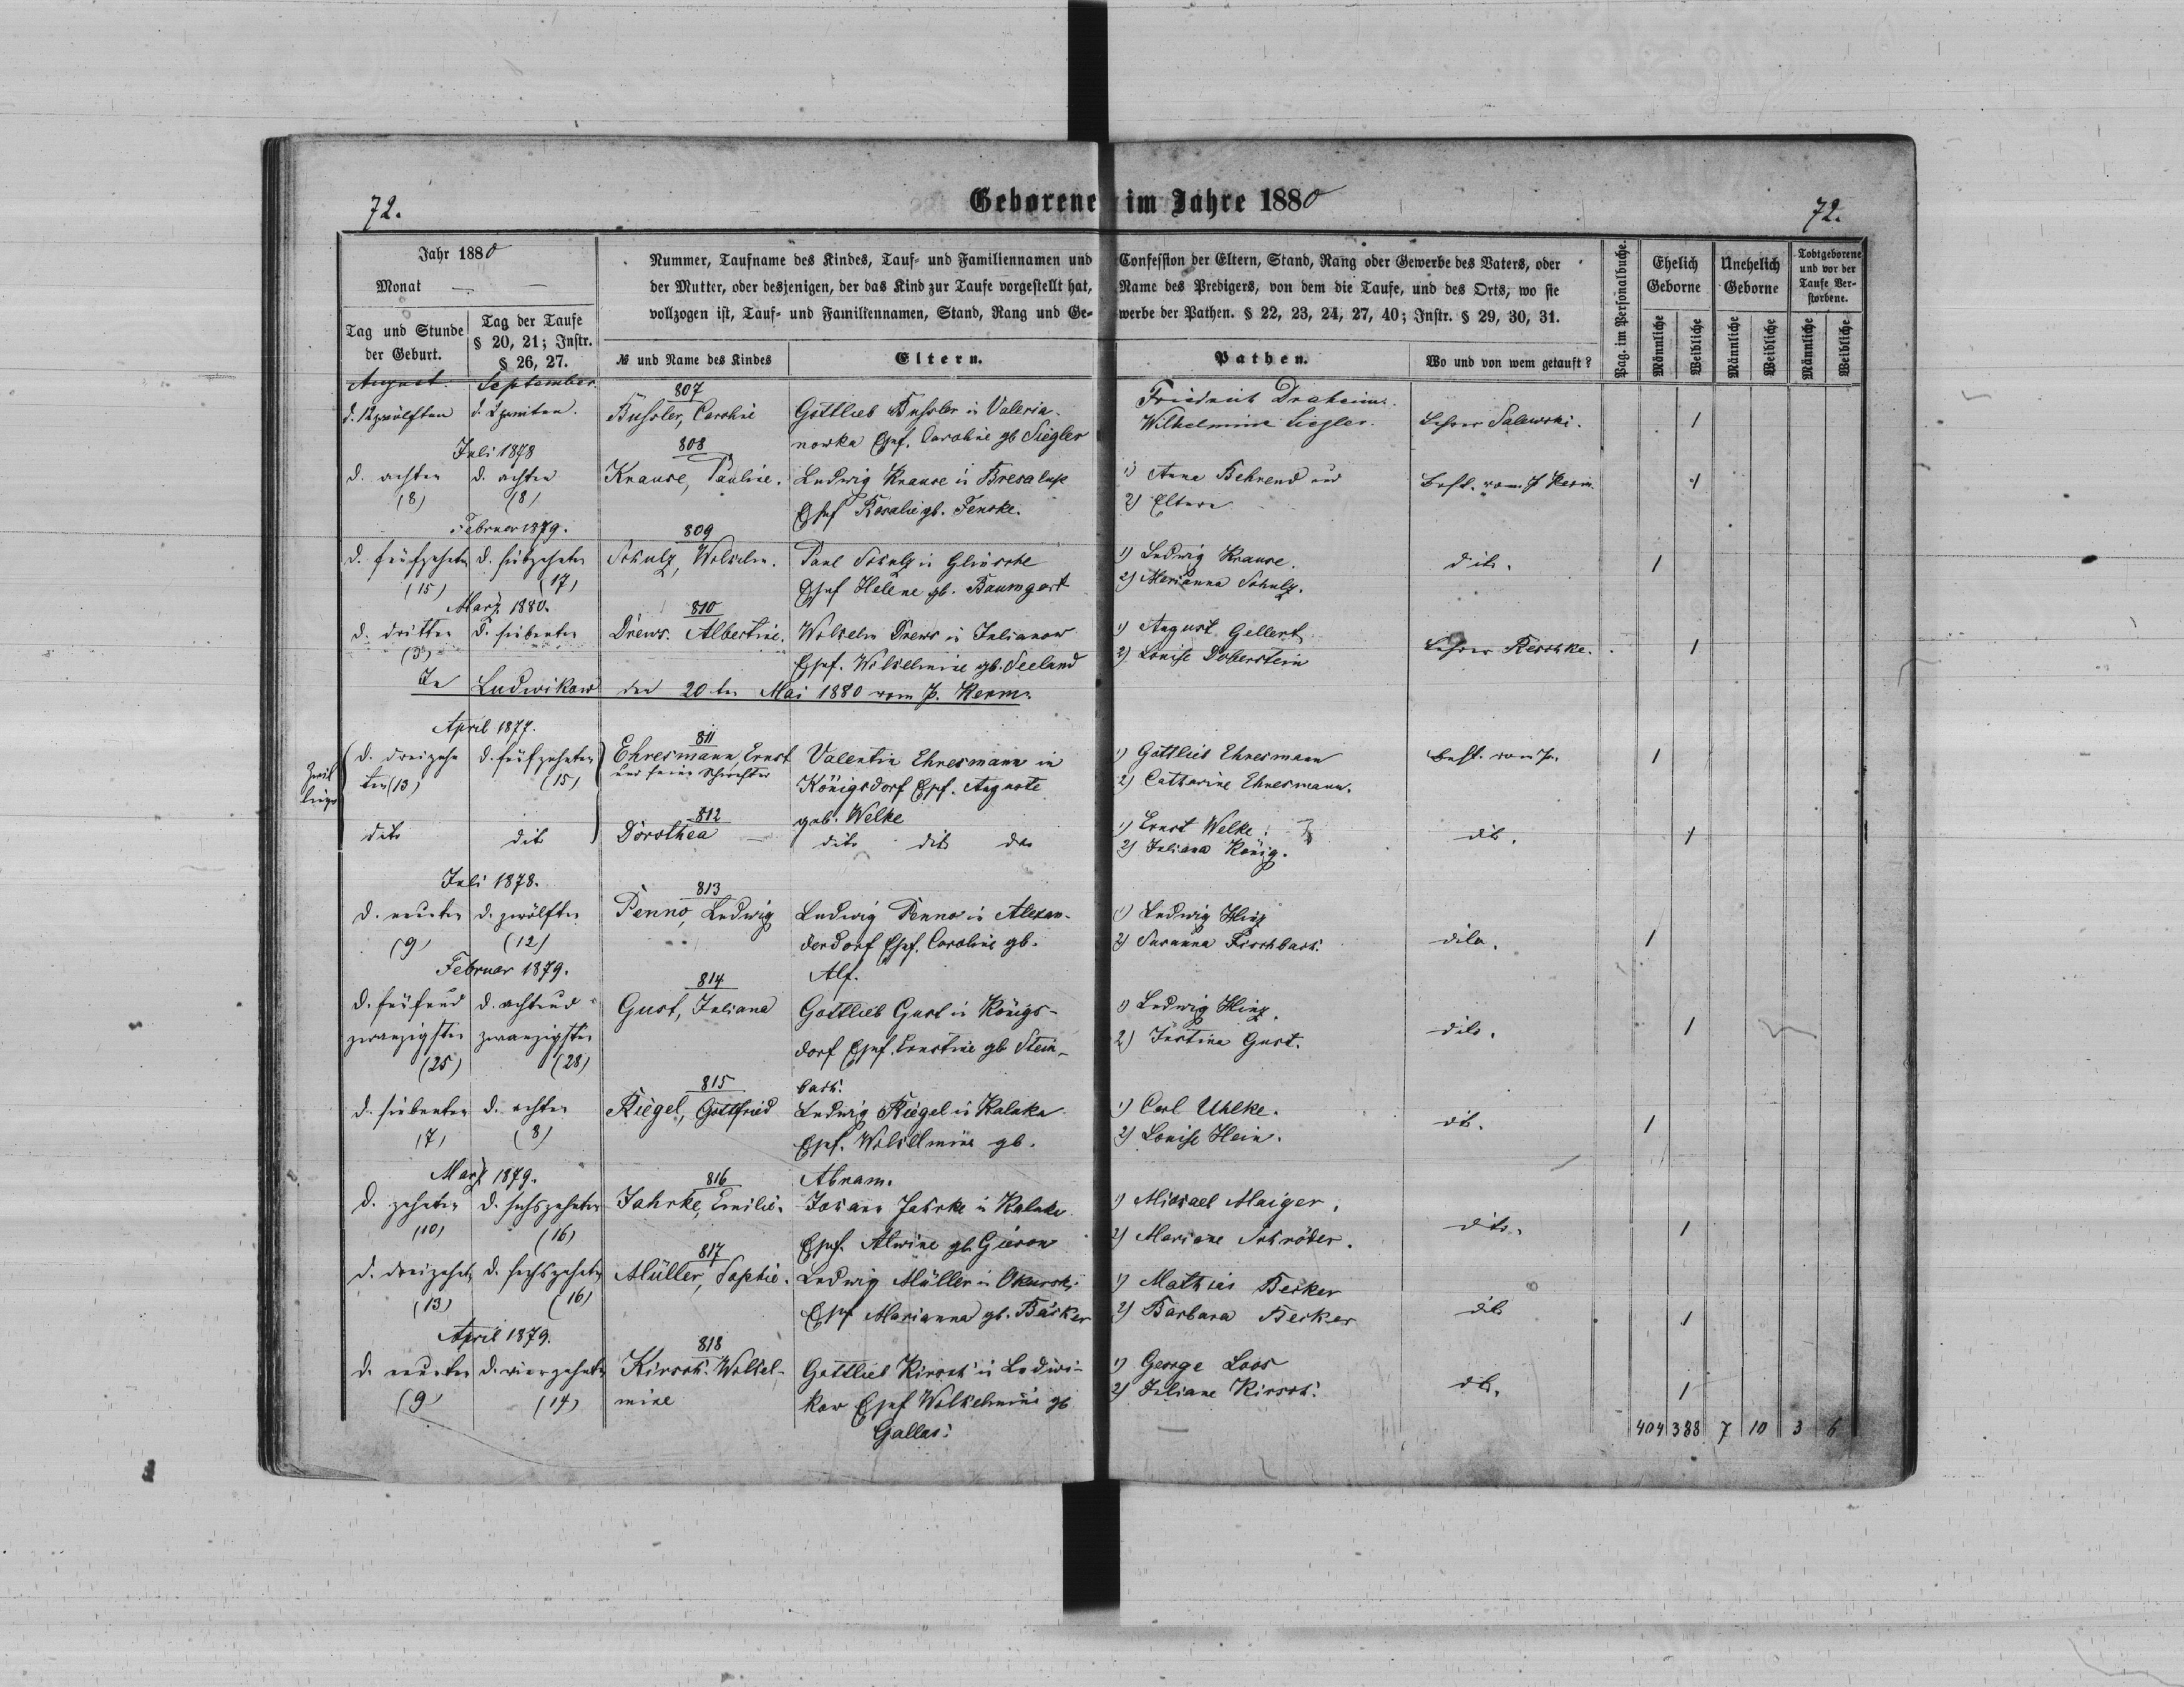 72.
Geborene im Jahre 1880
72.
Jahr 1880
Monat
Tag und Stunde der Geburt.
Tag der Taufe § 20, 21; Instr. § 26, 27.
Nummer, Taufname des Kindes, Tauf- und Familiennamen und Confession der Eltern, Stand, Rang oder Gewerbe des Vaters, oder
der Mutter, oder desjenigen, der das Kind zur Taufe vorgestellt hat, Name des Predigers, von dem die Taufe, und des Orts, wo sie
vollzogen ist, Tauf- und Familiennamen, Stand, Rang und Gewerbe der Pathen. § 22, 23, 24, 27, 40; Instr. § 29, 30, 31.
№ und Name des Kindes
Eltern.
Pathen.
Wo und von wem getauft?
Pag. im Personalbuche.
Ehelich Geborne
Unehelich Geborne
Todtgeborene und vor der Taufe Verstorbene.
Männliche
Weibliche
Männliche
Weibliche
Männliche
Weibliche
August. September
807
d. 12 zwölften d. 2 zweiten. Bussler, Caroline Gottlieb Bussler in Valeria- Friedrich Draheim.
nowka Ehef. Caroline gb Siegler Wilhelmine Siegler. Lehrer Salewski. 1
Juli 1878
808
d. achten d. achten Krause, Pauline. Ludwig Krause in 1) Anna Behrend 1
(8) (8) Ehef Rosalie gb. Fenske. 2) Eltern
Februar 1879.
809
d. fünfzehnten d. siebzehnten Schulz, Wilhelm. Paul Schulz in Glinsche 1) Ludwig Krause. dito. 1
(15) (17) Ehef Helene gb. Baumgart 2) Marianna Schulz.
März 1880.
810
d. dritten d. siebenten Drews. Albertine. Wilhelm Drews in Julianow 1) August Gellert
(3) Ehef. Wilhelmine gb. Seeland 2) Louise Doberstein Lehrer Reschke. 1
In Ludwikow den 20ten Mai 1880 vom P. Kerm.
April 1877.
811
Zwillinge
d. dreizehn d. fünfzehnten Ehresmann, Ernst Valentin Ehresmann in 1) Gottlieb Ehresmann best. von P. 1
ten (13) (15) und seine Schwester Königsdorf Ehef. Auguste 2) Catharine Ehresmann.
812
geb. Welke 1) Ernst Welke.
dito dito Dorothea dito dito dito 2) Juliana König. dito. 1
Juli 1878.
813
d. neunten d. zwölften Penno, Ludwig Ludwig Penno in Alexan- 1) Ludwig Hinz
(9) (12) derdorf Ehef. Caroline gb. 2) Susanna Fischbach. dito. 1
Februar 1879.
Alf.
814
d. fünfund d. achtund Gust, Juliana Gottlieb Gust in Königs- 1) Ludwig Hinz.
zwanzigsten zwanzigsten dorf Ehef. Ernstine gb Stein- 2) Justine Gust. dito. 1
(25) (28)
815
bach.
d. siebenten d. achten Riegel, Gottfried Ludwig Riegel in Kalaka 1) Carl Uhlke. dito. 1
(7) (8) Ehef. Wilhelmine gb. 2) Louise Hein.
März 1879.
816
Abram.
d. zehnten d. sechszehnten Jahrke, Emilie. Johann Jahrke in Kalaka 1) Michael Maiger.
(10) (16) Ehef. Alwine gb. Gieron 2) Mariane Schröder. dito. 1
817
d. dreizehnten d. sechszehnten Müller, Sophie. Ludwig Müller in 1) Mathies Becker
(13) (16) Ehef Marianna gb. Bäcker 2) Barbara Becker dito 1
April 1879.
818
d. neunten d. vierzehnten Kirsch. Wilhel- Gottlieb Kirsch in Ludwi- 1) George Loos
(9) (14) mine kow Ehef Wilhelmine gb 2) Juliane Kirsch. dito. 1
Gallas.
404 388 7 10 3 6